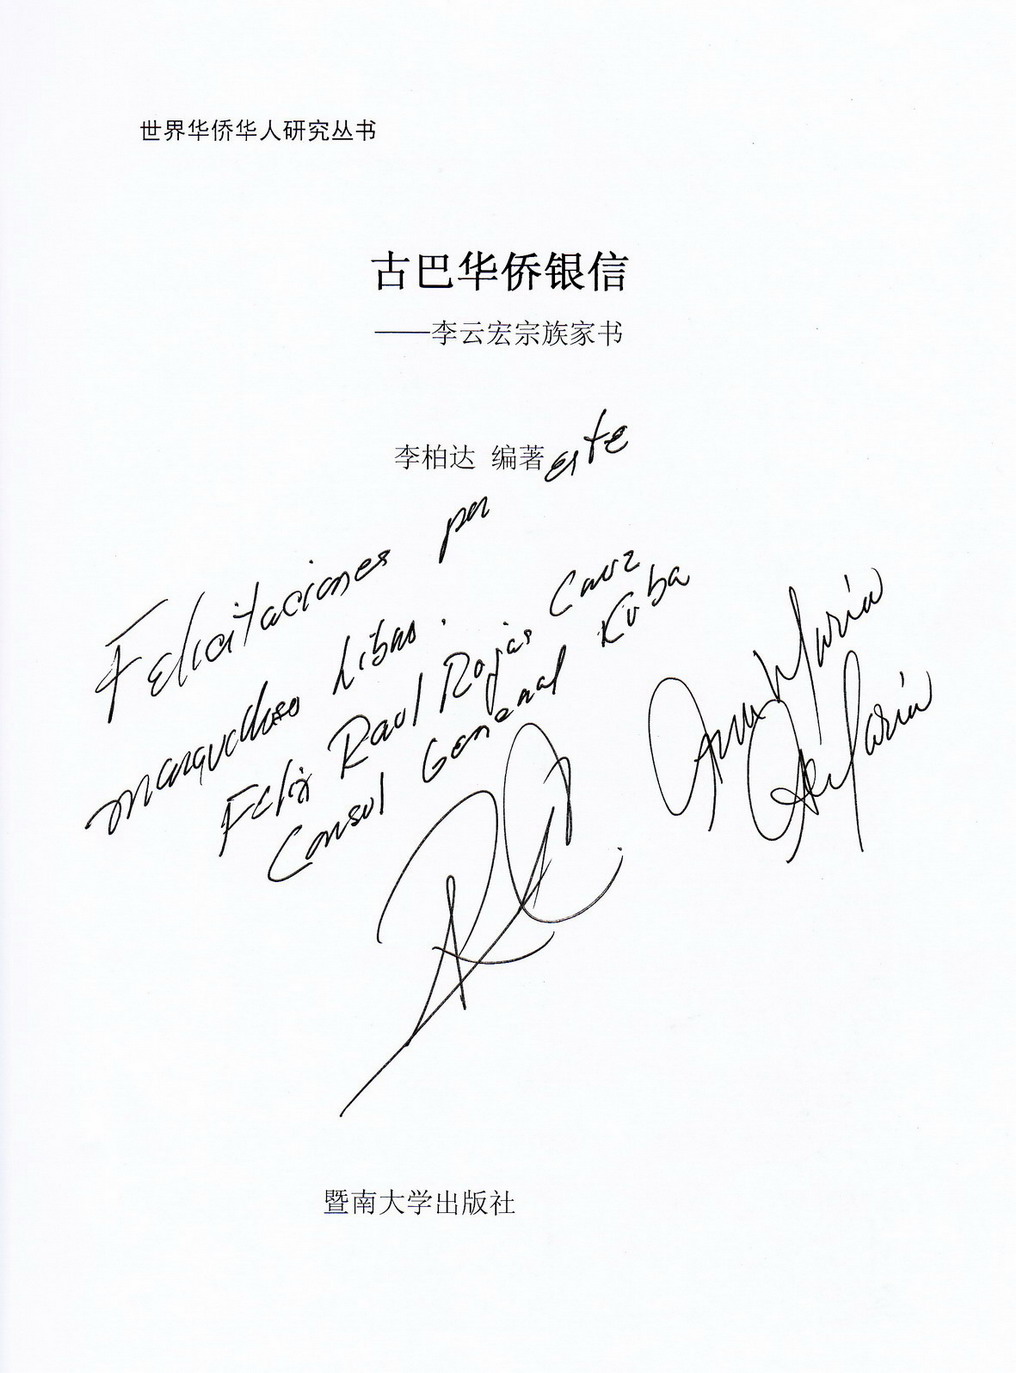 世界华侨华人研究丛书
古巴华侨银信
——李云宏宗族家书
李柏达 编著
Felicitaciones por este
maravilloso Libro.
Felix Raul Rojas Cruz
Consul General Kuba
Ana María
暨南大学出版社